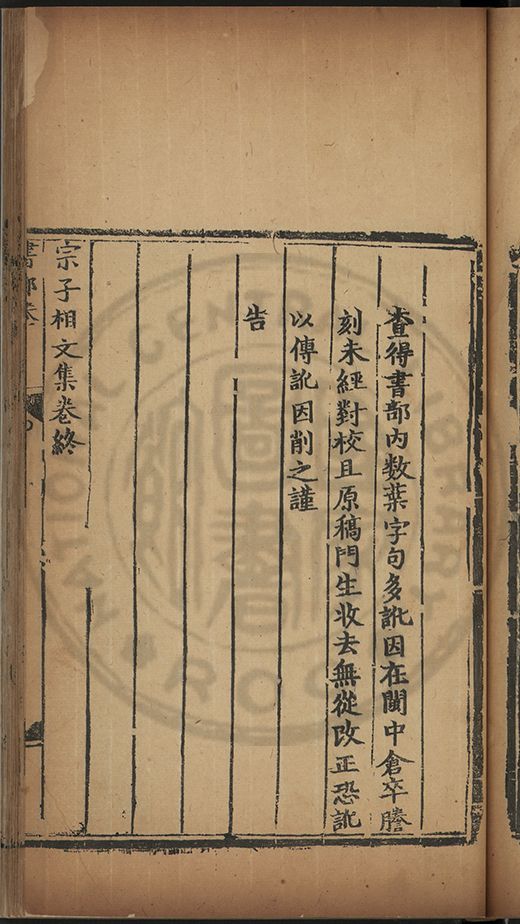 查得書部内数葉字句多訛因在閩中倉卒謄
刻未經對校且原稿門生收去無從改正恐訛
以傳訛因削之謹
告
宗子相文集卷終
書部